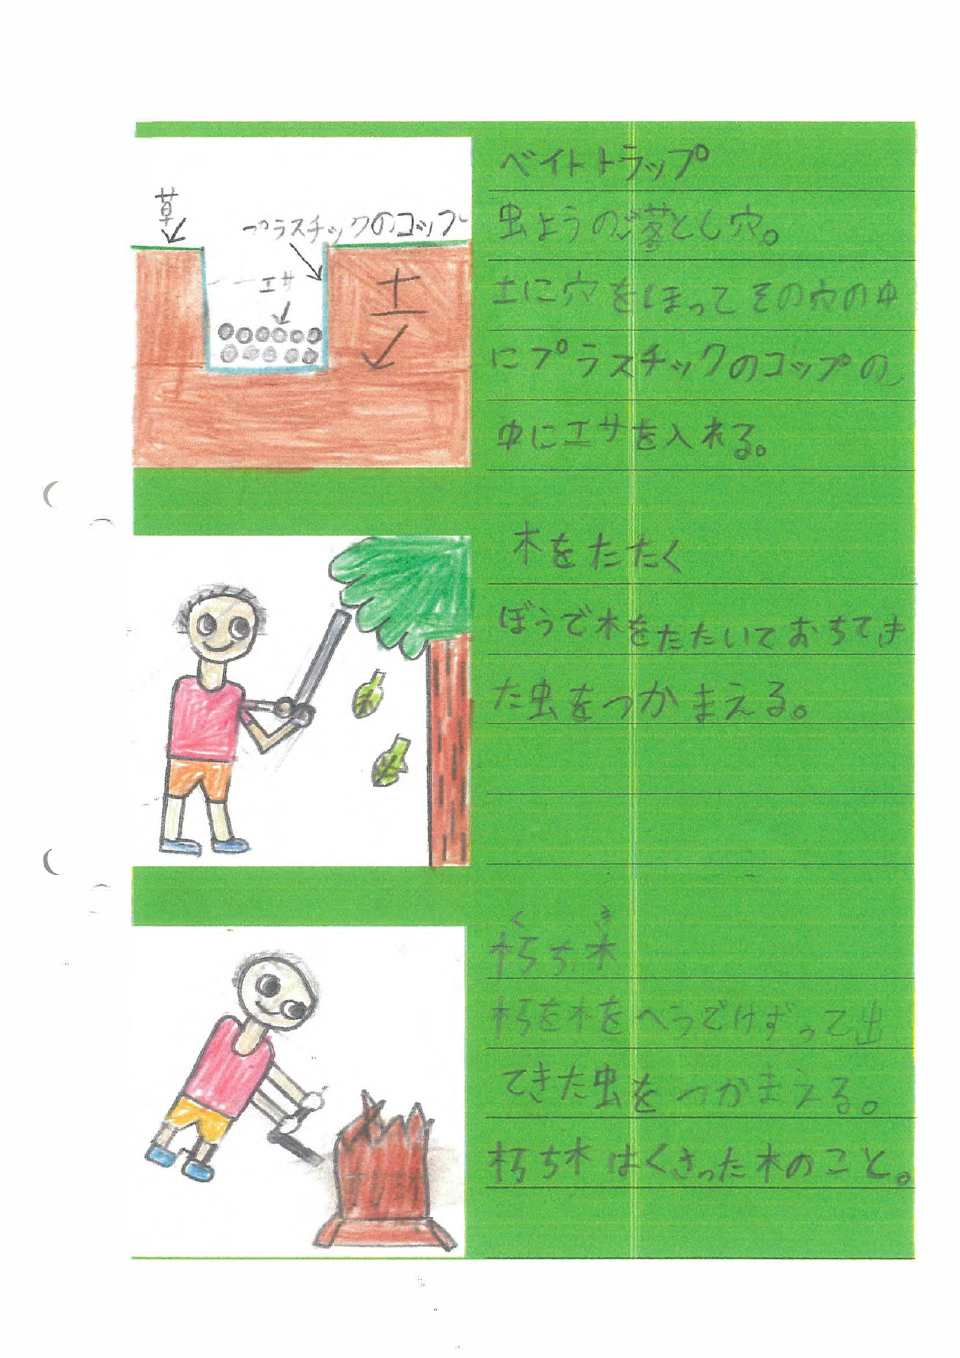 草
プラスチックのコップ
エサ
土
ベイトトラップ
虫ようの落とし穴。
土に穴をほってその穴の中
にプラスチックのコップの、
中にエサを入れる。
木をたたく
ぼうで木をたたいておちてき
た虫をつかまえる。
く き
朽ち木
朽を木をヘラでけずって出
てきた虫をつかまえる。
朽ち木はくさった木のこと。